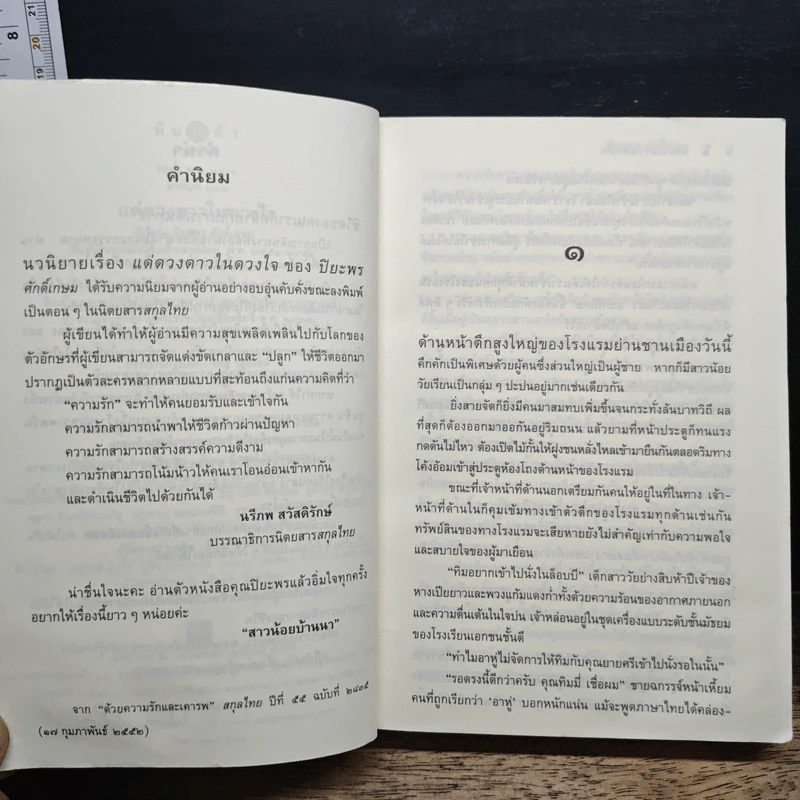 8
21
20
19
คำนิยม
นวนิยายเรื่อง แด่ดวงดาวในดวงใจ ของ ปิยะพร
ศักดิ์เกษม ได้รับความนิยมจากผู้อ่านอย่างอบอุ่นคับคั่งขณะลงพิมพ์
เป็นตอน ๆ ในนิตยสารสกุลไทย
ผู้เขียนได้ทำให้ผู้อ่านมีความสุขเพลิดเพลินไปกับโลกของ
ตัวอักษรที่ผู้เขียนสามารถจัดแต่งขัดเกลาและ “ปลูก” ให้ชีวิตออกมา
ปรากฏเป็นตัวละครหลากหลายแบบที่สะท้อนถึงแก่นความคิดที่ว่า
“ความรัก” จะทำให้คนยอมรับและเข้าใจกัน
ความรักสามารถนำพาให้ชีวิตก้าวผ่านปัญหา
ความรักสามารถสร้างสรรค์ความดีงาม
ความรักสามารถโน้มน้าวให้คนเราโอนอ่อนเข้าหากัน
และดำเนินชีวิตไปด้วยกันได้
นรีภพ สวัสดิรักษ์
บรรณาธิการนิตยสารสกุลไทย
น่าชื่นใจนะคะ อ่านตัวหนังสือคุณปิยะพรแล้วอิ่มใจทุกครั้ง
อยากให้เรื่องนี้ยาว ๆ หน่อยค่ะ
“สาวน้อยบ้านนา”
จาก “ด้วยความรักและเคารพ” สกุลไทย ปีที่ ๕๕ ฉบับที่ ๒๘๓๕
(๑๗ กุมภาพันธ์ ๒๕๕๒)
๑
ด้านหน้าตึกสูงใหญ่ของโรงแรมย่านชานเมืองวันนี้
คึกคักเป็นพิเศษด้วยผู้คนซึ่งส่วนใหญ่เป็นผู้ชาย หากก็มีสาวน้อย
วัยเรียนเป็นกลุ่ม ๆ ปะปนอยู่มากเช่นเดียวกัน
ยิ่งสายจัดก็ยิ่งมีคนมาสมทบเพิ่มขึ้นจนกระทั่งล้นบาทวิถี ผล
ที่สุดก็ต้องออกมาออกันอยู่ริมถนน แล้วยามที่หน้าประตูก็ทนแรง
กดดันไม่ไหว ต้องเปิดไม้กั้นให้ฝูงชนหลั่งไหลเข้ามายืนกันตลอดริมทาง
โค้งอ้อมเข้าสู่ประตูห้องโถงด้านหน้าของโรงแรม
ขณะที่เจ้าหน้าที่ด้านนอกเตรียมกันคนให้อยู่ในที่ในทาง เจ้า-
หน้าที่ด้านในก็คุมเข้มทางเข้าตัวตึกของโรงแรมทุกด้านเช่นกัน
ทรัพย์สินของทางโรงแรมจะเสียหายยังไม่สำคัญเท่ากับความพอใจ
และสบายใจของผู้มาเยือน
“ทิมอยากเข้าไปนั่งในล็อบบี” เด็กสาววัยย่างสิบห้าปีเจ้าของ
หางเปียยาวและพวงแก้มแดงก่ำทั้งด้วยความร้อนของอากาศภายนอก
และความตื่นเต้นในใจบ่น เจ้าหล่อนอยู่ในชุดเครื่องแบบระดับชั้นมัธยม
ของโรงเรียนเอกชนชั้นดี
“ทำไมอาหู่ไม่จัดการให้ทิมกับคุณยายศรีเข้าไปนั่งรอในนั้น”
“รอตรงนี้ดีกว่าครับ คุณทิมมี่ เชื่อผม” ชายฉกรรจ์หน้าเหี้ยม
คนที่ถูกเรียกว่า ‘อาหู่’ บอกหนักแน่น แม้จะพูดภาษาไทยได้คล่อง-